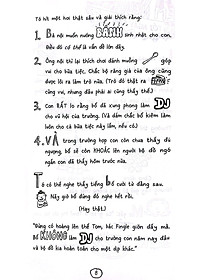 Tớ hít một hơi thật sâu và giải thích rằng:
1. Bà nội muốn nướng BÁNH sinh nhật cho con.
Điều đó có thể là vấn đề lớn đấy.
2. Ông nội thì lại thích chơi đánh muỗng góp
vui cho bữa tiệc. Chắc bộ răng giả của ông cũng
được lôi ra làm trò nữa. (Trò đó thật ra
cũng vui, nhưng đâu phải ai cũng thấy thế.)
3. Con RẤT lo rằng bố đã xung phong làm DJ
cho vũ hội của trường. (Và dám chắc bố kiêm luôn
cho cả bữa tiệc này lắm, nếu có.)
4. VÀ trong trường hợp con còn chưa thấy đủ
ngượng, bố sẽ còn KHOÁC lên người bộ đồ ngố
ngần con đã thấy hôm trước nữa.
Tớ có thể nghe thấy tiếng bố cười từ đằng sau.
Nãy giờ bố đứng đó nghe hết rồi.
(Hay thật.)
"Đừng có hoảng lên thế Tom, bác Fingle giỡn đấy mà.
Bố KHÔNG làm DJ cho trường con năm nay đâu
và bộ đồ kia hoàn toàn cho một dịp khác."
8